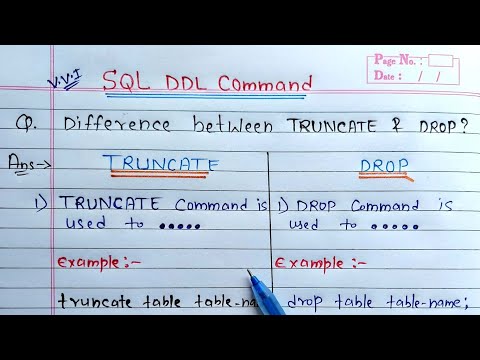 Page No. :
Date : / /
V.V.I SQL DDL Command
Q. Difference between TRUNCATE & DROP?
Ans→ TRUNCATE DROP
1) TRUNCATE Command is 1) DROP Command is
used to ••••• used to •••••
Example:- Example:-
truncate table table-na drop table table-name;